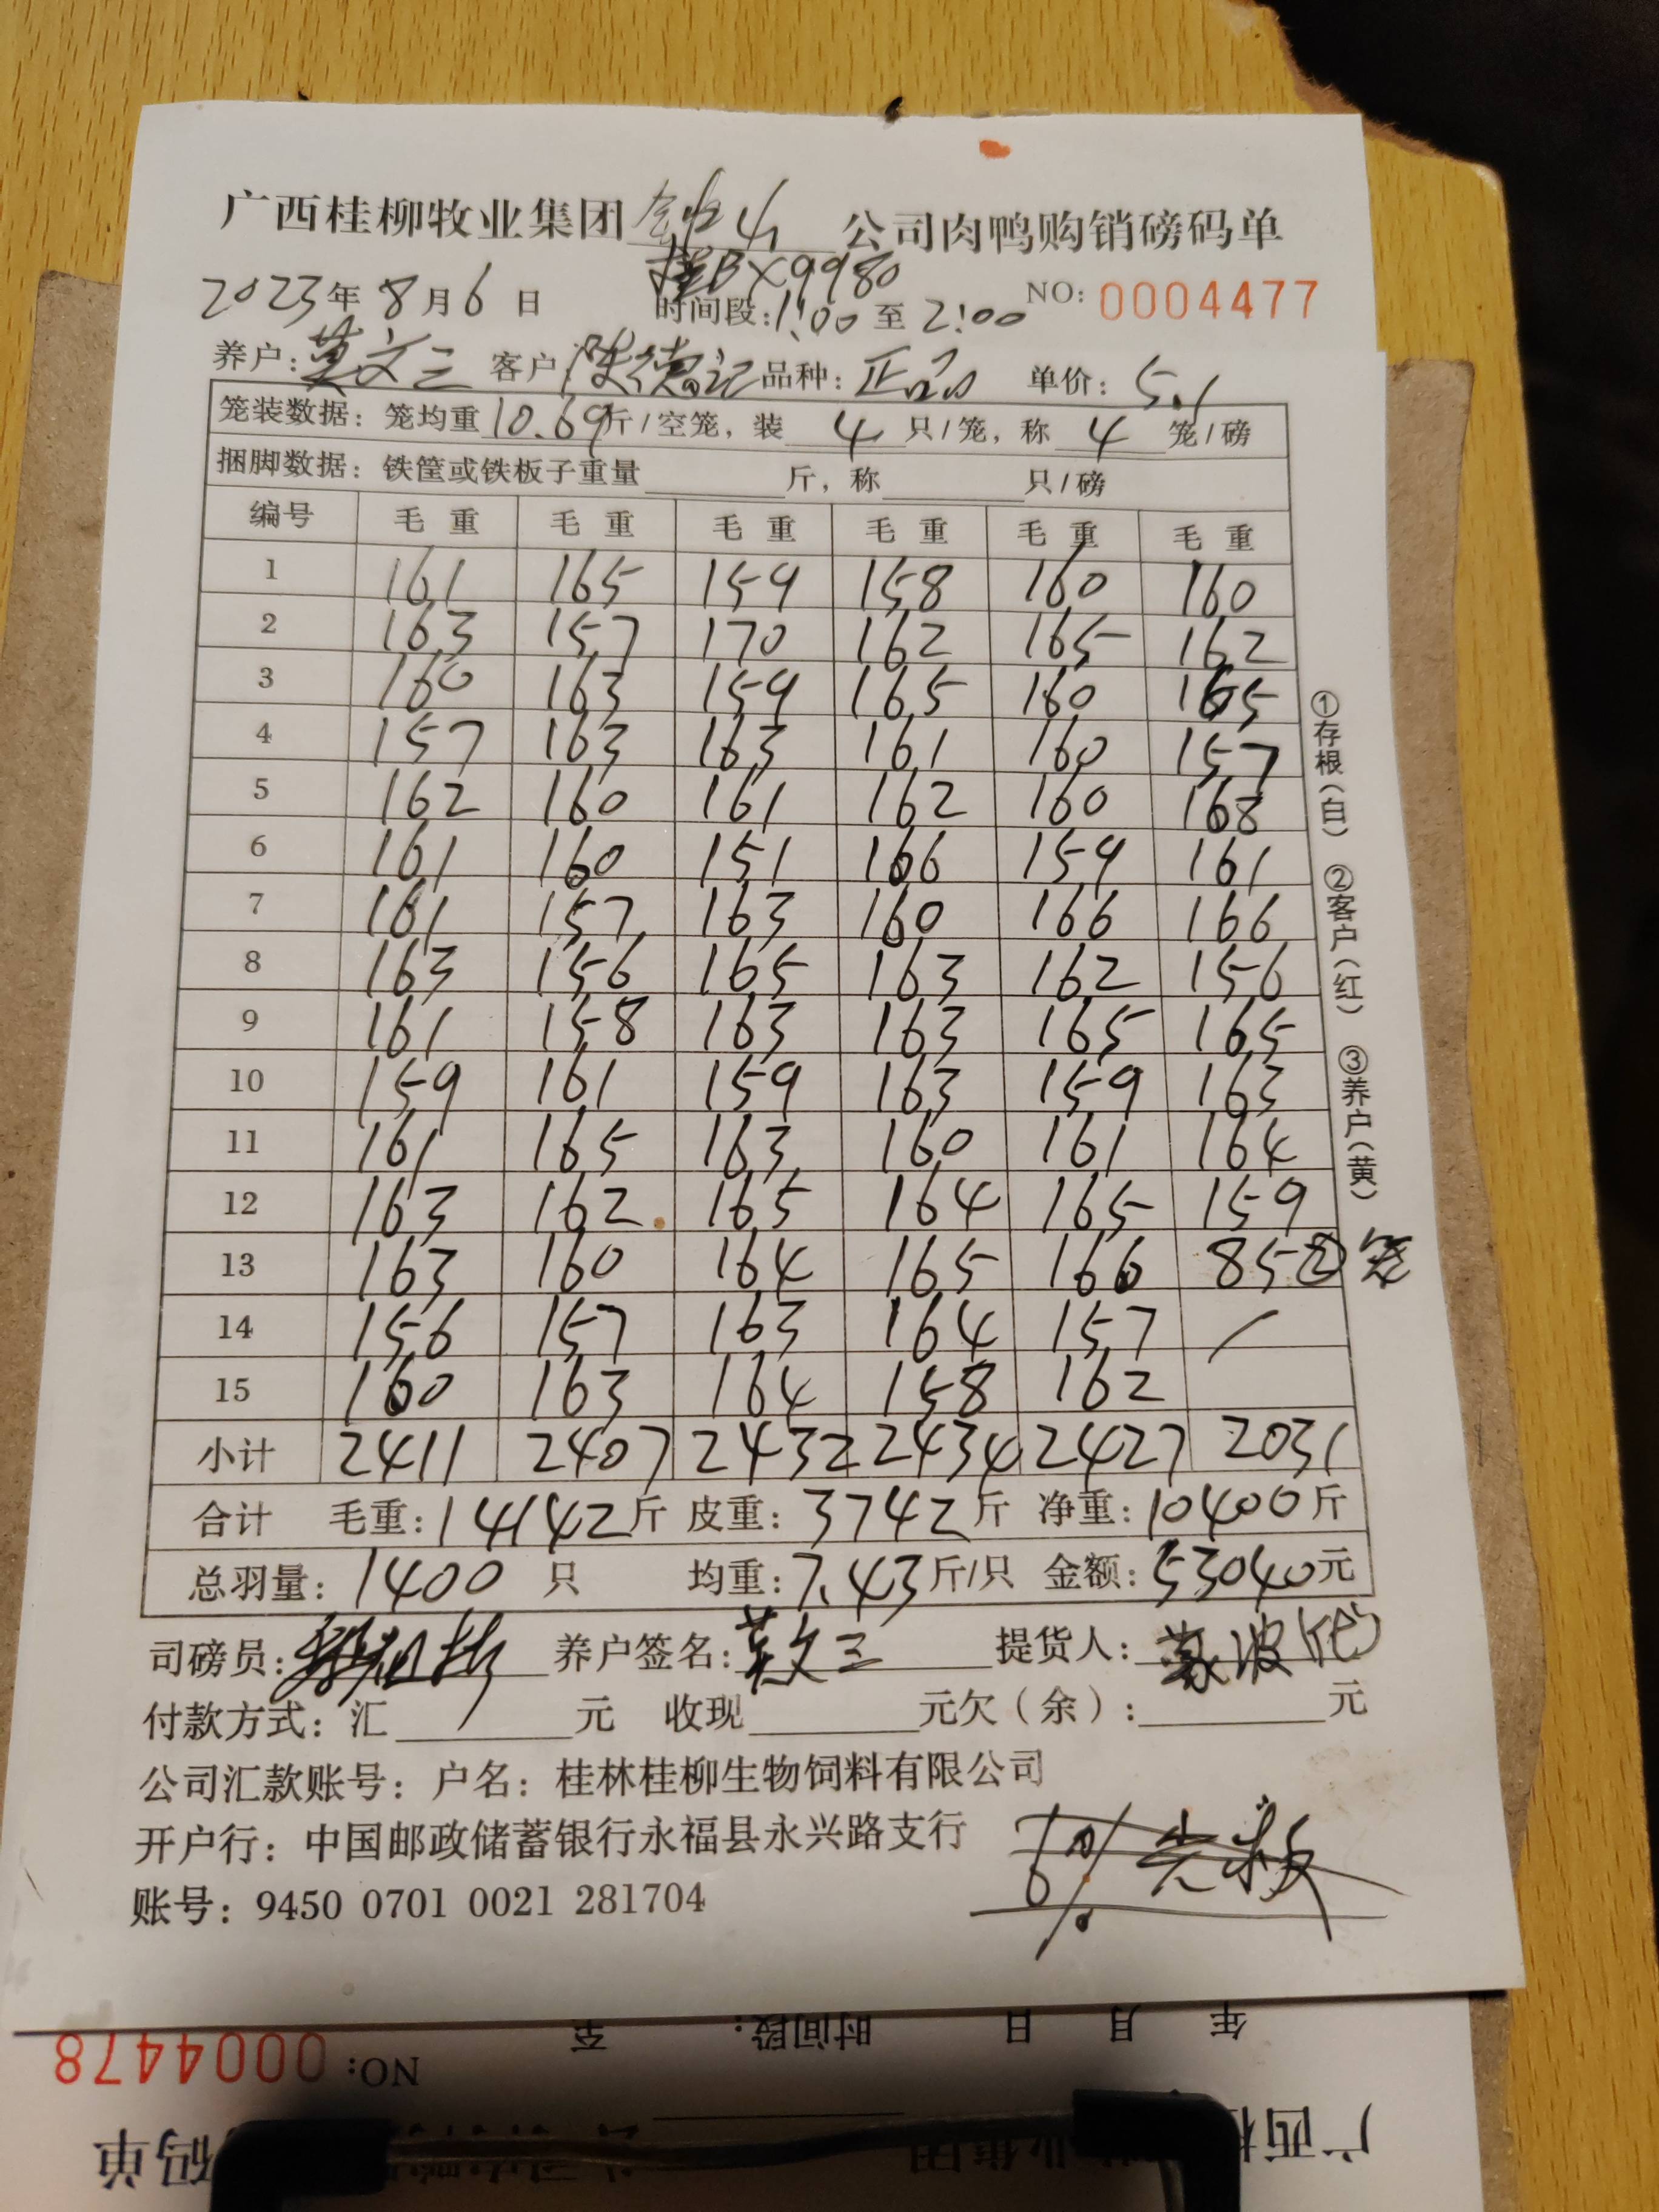 广西桂柳牧业集团 公司肉鸭购销磅码单
桂BX9980
2023年8月6日 时间段:1:00至2:00 NO: 0004477
养户:莫文三 客户:陈德记 品种:正品 单价:5.1
笼装数据:笼均重10.69斤/空笼,装4只/笼,称4笼/磅
捆脚数据:铁筐或铁板子重量 斤,称 只/磅
编号 毛重 毛重 毛重 毛重 毛重 毛重
1 161 165 159 158 160 160
2 163 157 170 162 165 162
3 160 163 159 165 160 165
4 157 163 163 161 160 157
5 162 160 161 162 160 168
6 161 160 151 166 159 161
7 161 157 163 160 166 166
8 163 156 165 163 162 156
9 161 158 163 163 165 165
10 159 161 159 163 159 163
11 161 165 163 160 161 164
12 163 162 165 164 165 159
13 163 160 164 165 166 85②笼
14 156 157 163 164 157 /
15 160 163 164 158 162
小计 2411 2407 2432 2434 2427 2031
合计 毛重:14142斤 皮重:3742斤 净重:10400斤
总羽量:1400只 均重:7.43斤/只 金额:53040元
①存根(白) ②客户(红) ③养户(黄)
司磅员: 养户签名:莫文三 提货人:蒙波(代)
付款方式:汇 元 收现 元欠(余): 元
公司汇款账号:户名:桂林桂柳生物饲料有限公司
开户行:中国邮政储蓄银行永福县永兴路支行
账号:9450 0701 0021 281704
年 月 日 时间段: 至
NO: 0004478
广西 业集团 码单